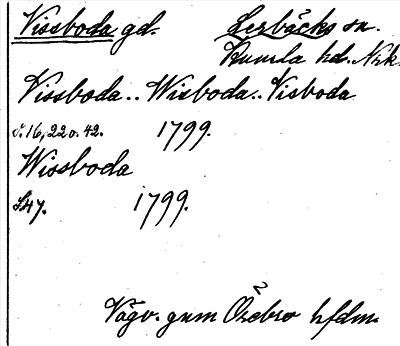 Vissboda gd. Lerbäcks sn.
Kumla hd. Nrk.
Vissboda.. Wisboda.. Visboda
s. 16, 22 o. 42. 1799.
Wissboda
S 47. 1799.
Vägv. gnm Örebro hfdm.